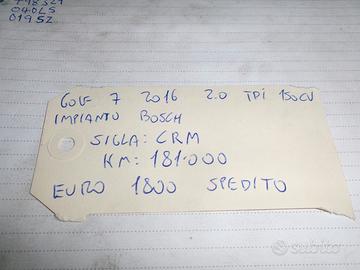 04015
01952
GOLF 7 2016 2.0 TDI 150CV
IMPIANTO BOSCH
SIGLA: CRM
KM: 181.000
EURO 1800 SPEDITO
subito